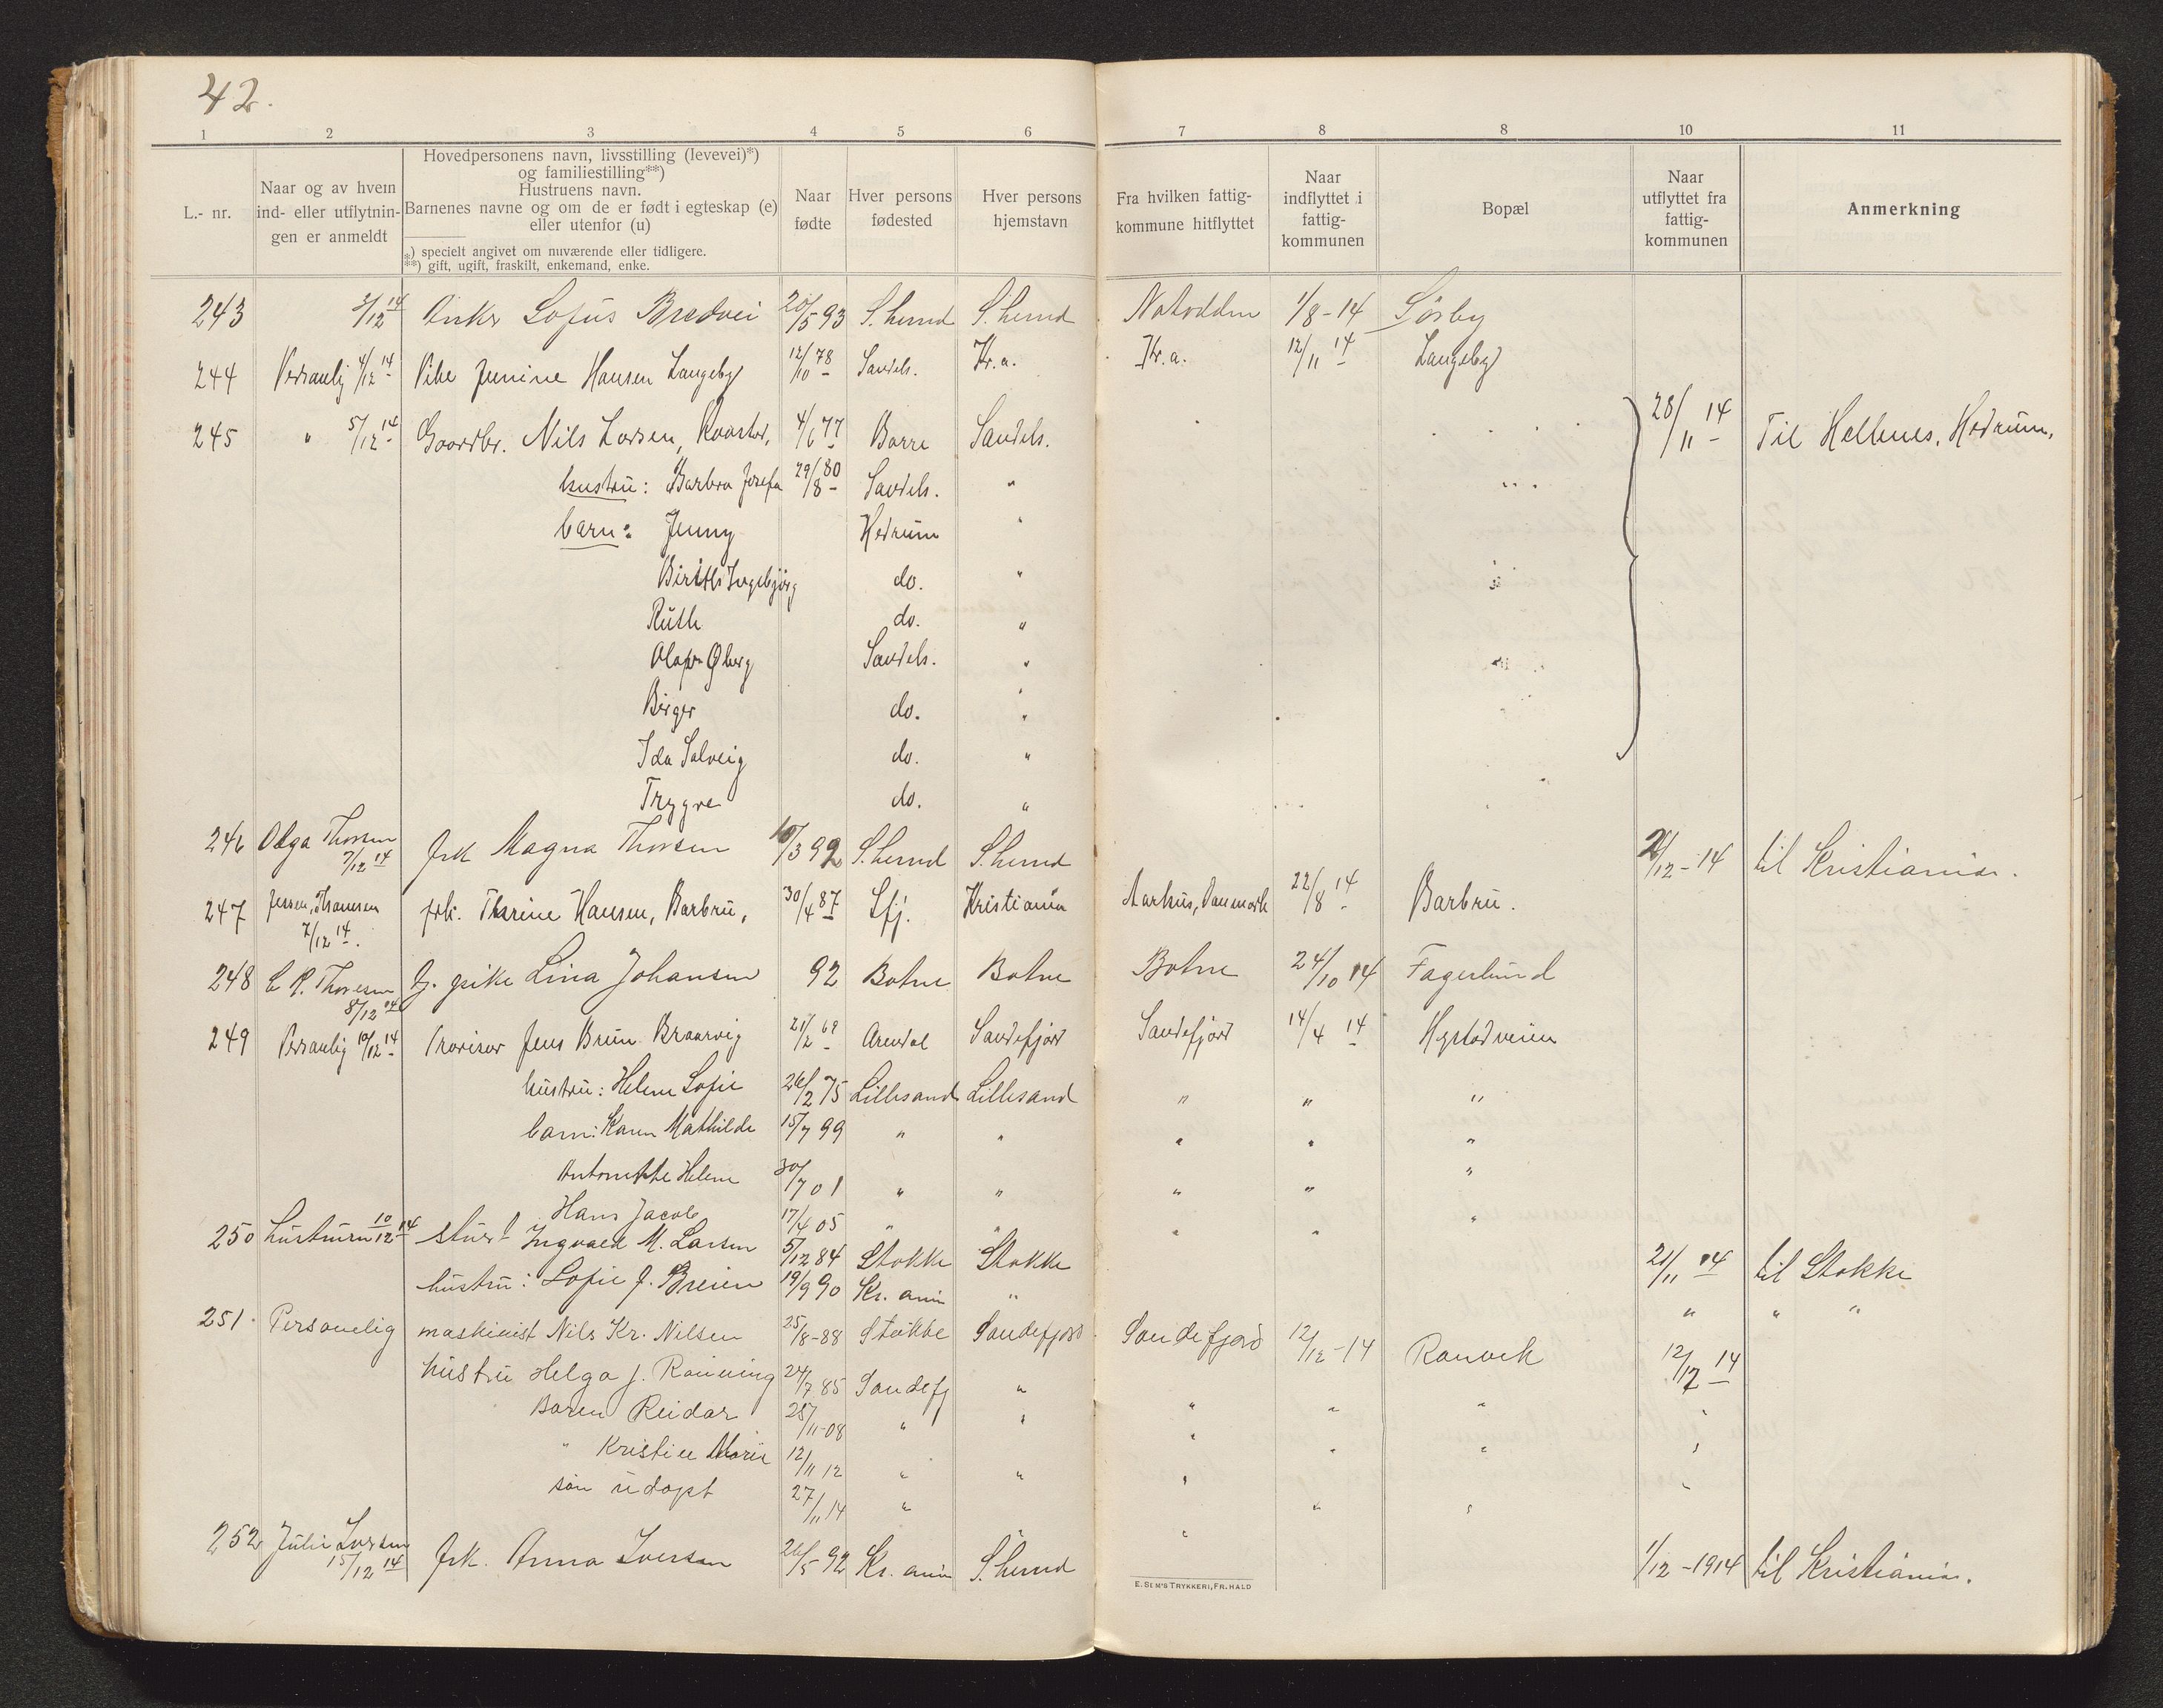 42.
1 2 3 4 5 6 7 8 8 10 11
L.- nr.
Naar og av hvem ind- eller utflytnin- gen er anmeldt
Hovedpersonens navn, livsstilling (levevei)*)
og familiestilling**)
Hustruens navn.
Barnenes navne og om de er født i egteskap (e)
eller utenfor (u)
*) specielt angivet om nuværende eller tidligere.
**) gift, ugift, fraskilt, enkemand, enke.
Naar fødte
Hver persons fødested
Hver persons hjemstavn
Fra hvilken fattig- kommune hitflyttet
Naar indflyttet i fattig- kommunen
Bopæl
Naar utflyttet fra fattig- kommunen
Anmerkning
243 3/12 14 Anker Sofus Bredvei 20/5 93 S.herred S.herred Notodden 1/8-14 Sörby
244 Personlig 4/12 14 Pike Jenine Hansen Langeby 12/10 78 Sandeh. Kr.a. Kr.a. 12/11 14 Langeby
245 " 5/12 14 Gaardbr. Nils Larsen, 4/6 77 Borre Sandeh. 28/11 14 Til Hellenes, Hedrum.
hustru: Barbra Josefa 29/8 80 Sandeh. "
barn: Jenny Hedrum "
Ingebjörg do. "
Ruth do. "
Olaf Sandeh. "
Birger do. "
Ida Solveig do. "
Trygve do. "
246 Olga Thorsen 7/12 14 frk Magna Thorsen 10/3 92 S.herred S.herred /12-14 til Kristiania.
247 7/12 14. frk. Thrine Hansen, Barbru, 30/4 87 Sfj. Kristiania Aarhus, Danmark 22/8 14 Barbru.
248 8/12 14 tj. pike Lina Johansen 92 Botne Botne Botne 24/10 14 Fagerlund
249 Personlig 10/12 14 Provisor Jens Brun Braarvig 21/2 69 Arendal Sandefjord Sandefjord 14/4 14 Hystadveien
hustru: Helene Sofie 26/2 75 Lillesand Lillesand " " "
barn: Karen Mathilde 15/7 99 " " " " "
Antonette Helene 30/7 01 " " " " "
Hans Jacob 17/4 05 " " " " "
250 hustruen 10/12 14 Ingvald M. Larsen 5/12 84 Stokke Stokke 21/11 14 til Stokke
hustru: Sofie J. Breien 19/9 90 Kr. ania " " " "
251. Personelig maskinist Nils Kr. Nilsen 25/8-88 Stokke Sandefjord Sandefjord 12/12-14 Ranvik 12/12 14
hustru Helga J. Rønning 24/7 85 Sandefj " " " " "
Baren Reidar 25/11-08 " " " " " "
" Kristine Marie 12/11 12 " " " "
søn udøpt 27/11 14 " " "
252 Julie Iversen 15/12 14 frk. Anna Iversen 26/5 92 Kr. ania S.herred 1/12-1914 til Kristiania.
E. SEM'S TRYKKERI, FR.HALD